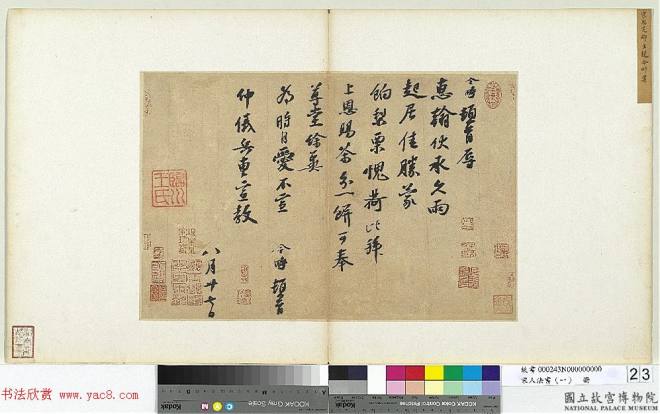 令畤頓首辱
惠翰伏承久雨
起居佳勝蒙
餉梨栗愧荷比拜
上恩賜茶分一餅可奉
尊堂餘冀
為時自愛不宣 令畤頓首
仲儀兵曹宣教
八月廿七日
臨川王氏
书法欣赏 www.yac8.com
故書 000243N000000000
宋人法書(一) 冊
23
國立故宮博物院
NATIONAL PALACE MUSEUM